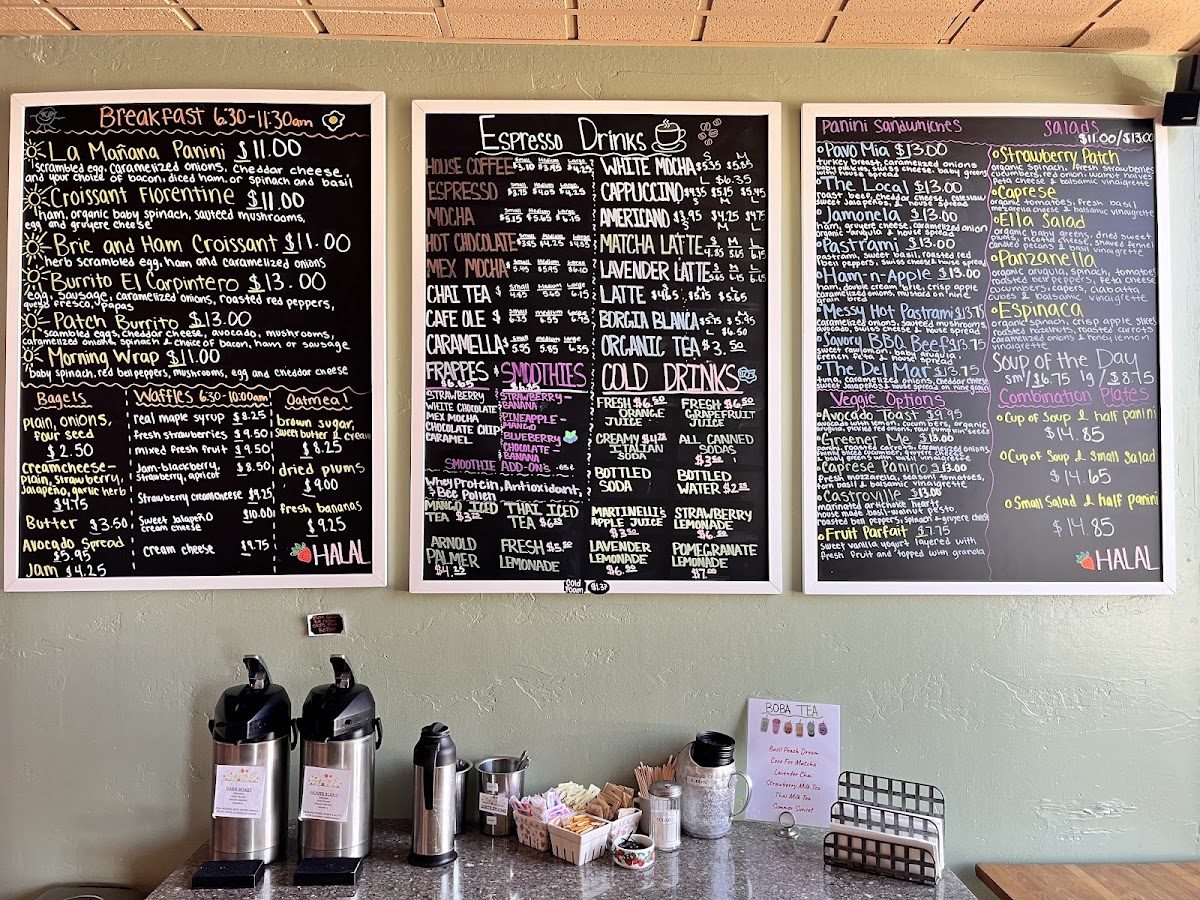 Breakfast 6:30-11:30am
La Mañana Panini $11.00
scrambled egg, caramelized onions, cheddar cheese,
and your choice of bacon, diced ham, or spinach and basil
Croissant Florentine $11.00
ham, organic baby spinach, sauteed mushrooms,
egg and gruyere cheese
Brie and Ham Croissant $11.00
herb scrambled egg, ham and caramelized onions
Burrito El Carpintero $13.00
egg, sausage, caramelized onions, roasted red peppers,
queso fresco, papas
Patch Burrito $13.00
scrambled eggs, cheddar cheese, avocado, mushrooms,
caramelized onions, spinach & choice of bacon, ham or sausage
Morning Wrap $11.00
baby spinach, red bell peppers, mushrooms, egg and cheddar cheese
Bagels
plain, onions,
four seed
$2.50
creamcheese-
plain, strawberry,
jalapeño, garlic herb
$4.75
Butter $3.50
Avocado Spread
$5.95
Jam $4.25
Waffles 6:30-10:00am
real maple syrup $8.25
fresh strawberries $9.50
mixed fresh fruit $9.50
Jam-blackberry, $8.50
Strawberry, apricot
Strawberry creamcheese $9.25
Sweet Jalapeño $10.00
cream cheese
cream cheese $9.75
Oatmeal
brown sugar,
sweet butter & cream
$8.25
dried plums
$9.00
fresh bananas
$9.25
HALAL
Espresso Drinks
HOUSE COFFEE Small $3.10 Medium $3.95 Large $4.25
ESPRESSO Small $3.75 Medium $4.05 Large $4.25
MOCHA Small $5.15 Medium $5.65 Large $6.15
HOT CHOCOLATE Small $3.95 Medium $4.25 Large $4.95
MEX MOCHA Small $5.45 Medium $5.95 Large $6.10
CHAI TEA $ Small 4.65 Medium 5.65 Large 6.15
CAFE OLE $ small 6.35 medium 6.55 large 6.75
CARAMELLA $ Small 5.55 Medium 5.85 Large 6.35
WHITE MOCHA S $5.35 M $5.85
L $6.35
CAPPUCCINO $4.35 $5.15 $5.45
AMERICANO S $3.95 M $4.25 L $4.75
MATCHA LATTE S 4.85 M 5.65 L 6.15
LAVENDER LATTE S 4.65 M 5.65 L 6.15
LATTE $4.65 $5.15 $5.65
BORGIA BLANCA S $5.75 M $5.95
L $6.35
ORGANIC TEA $3.50
FRAPPES $
$6.65
STRAWBERRY
WHITE CHOCOLATE
MEX MOCHA
CHOCOLATE CHIP
CARAMEL
SMOOTHIES
$6.85
STRAWBERRY-
BANANA
PINEAPPLE-
MANGO
BLUEBERRY
CHOCOLATE
BANANA
SMOOTHIE ADD-ONS .65¢
Whey Protein, Antioxidant,
& Bee Pollen
MANGO ICED TEA $3.25
THAI ICED TEA $6.25
ARNOLD PALMER $4.25
FRESH $5.50
LEMONADE
COLD DRINKS
FRESH $6.50
ORANGE JUICE
FRESH $6.50
GRAPEFRUIT JUICE
CREAMY $4.25
ITALIAN SODA
ALL CANNED SODAS
$3.50
BOTTLED SODA
BOTTLED WATER $2.25
MARTINELLI'S
APPLE JUICE
$3.50
STRAWBERRY
LEMONADE
$6.
LAVENDER
LEMONADE
$6.
POMEGRANATE
LEMONADE
$7.00
Cold Foam $1.37
Panini Sandwiches
Pavo Mia $13.00
turkey breast, caramelized onions
swiss cheese, baby greens
with house spread
The Local $13.00
roast beef, cheddar cheese, coleslaw
sweet jalapeños, & house spread
Jamonela $13.00
ham, gruyere cheese, caramelized onion
organic arugula & house spread
Pastrami $13.00
pastrami, sweet basil, roasted red
bell peppers, swiss cheese & house spread
Ham-n-Apple $13.00
ham, double cream brie, crisp apple
caramelized onions, mustard on nine
grain bread
Messy Hot Pastrami $13.75
caramelized onions, sauteed mushrooms,
avocado, swiss cheese & house spread
Savory BBQ Beef $13.75
sweet raw onion, baby arugula
french feta & house spread
The Del Mar $13.75
tuna, caramelized onions, cheddar cheese
sweet jalapeños & house spread on nine grain
Veggie Options
Avocado Toast $9.95
avocado with lemon, cucumbers, organic
arugula, pickled red onion, raw pumpkin seeds
Greener Me $13.00
Caprese Panino $13.00
fresh mozzarella, season tomatoes,
torn basil & balsamic vinaigrette
Castroville $13.00
marinated artichoke hearts
house made basil-walnut pesto,
roasted bell peppers, spinach & gruyere cheese
Fruit Parfait $7.75
sweet vanilla yogurt layered with
fresh fruit and topped with granola
Salads
$11.00/$13.00
Strawberry Patch
organic spinach, fresh strawberries
cucumbers, red onion, walnut halves
feta cheese & balsamic vinaigrette
Caprese
organic tomatoes, fresh basil
mozzarella cheese & balsamic vinaigrette
Ella Salad
organic baby greens, dried sweet
plums, ricotta cheese, shaved fennel
candied pecans & basil vinaigrette
Panzanella
organic arugula, spinach, tomatoes
roasted bell peppers, feta cheese
cucumbers, capers, ciabatta
cubes & balsamic vinaigrette
Espinaca
organic spinach, crisp apple slices
roasted hazelnuts, roasted carrots
caramelized onions & honey lemon
vinaigrette
Soup of the Day
sm/$6.75 lg/$8.75
Combination Plates
Cup of Soup & half panini
$14.85
Cup of Soup & Small Salad
$14.65
Small Salad & half Panini
$14.85
HALAL
DARK ROAST
HOUSE BLEND
BOBA TEA
Basil Peach Dream
Coco For Matcha
Lavender Chai
Strawberry Milk Tea
Thai Milk Tea
Summer Sunset